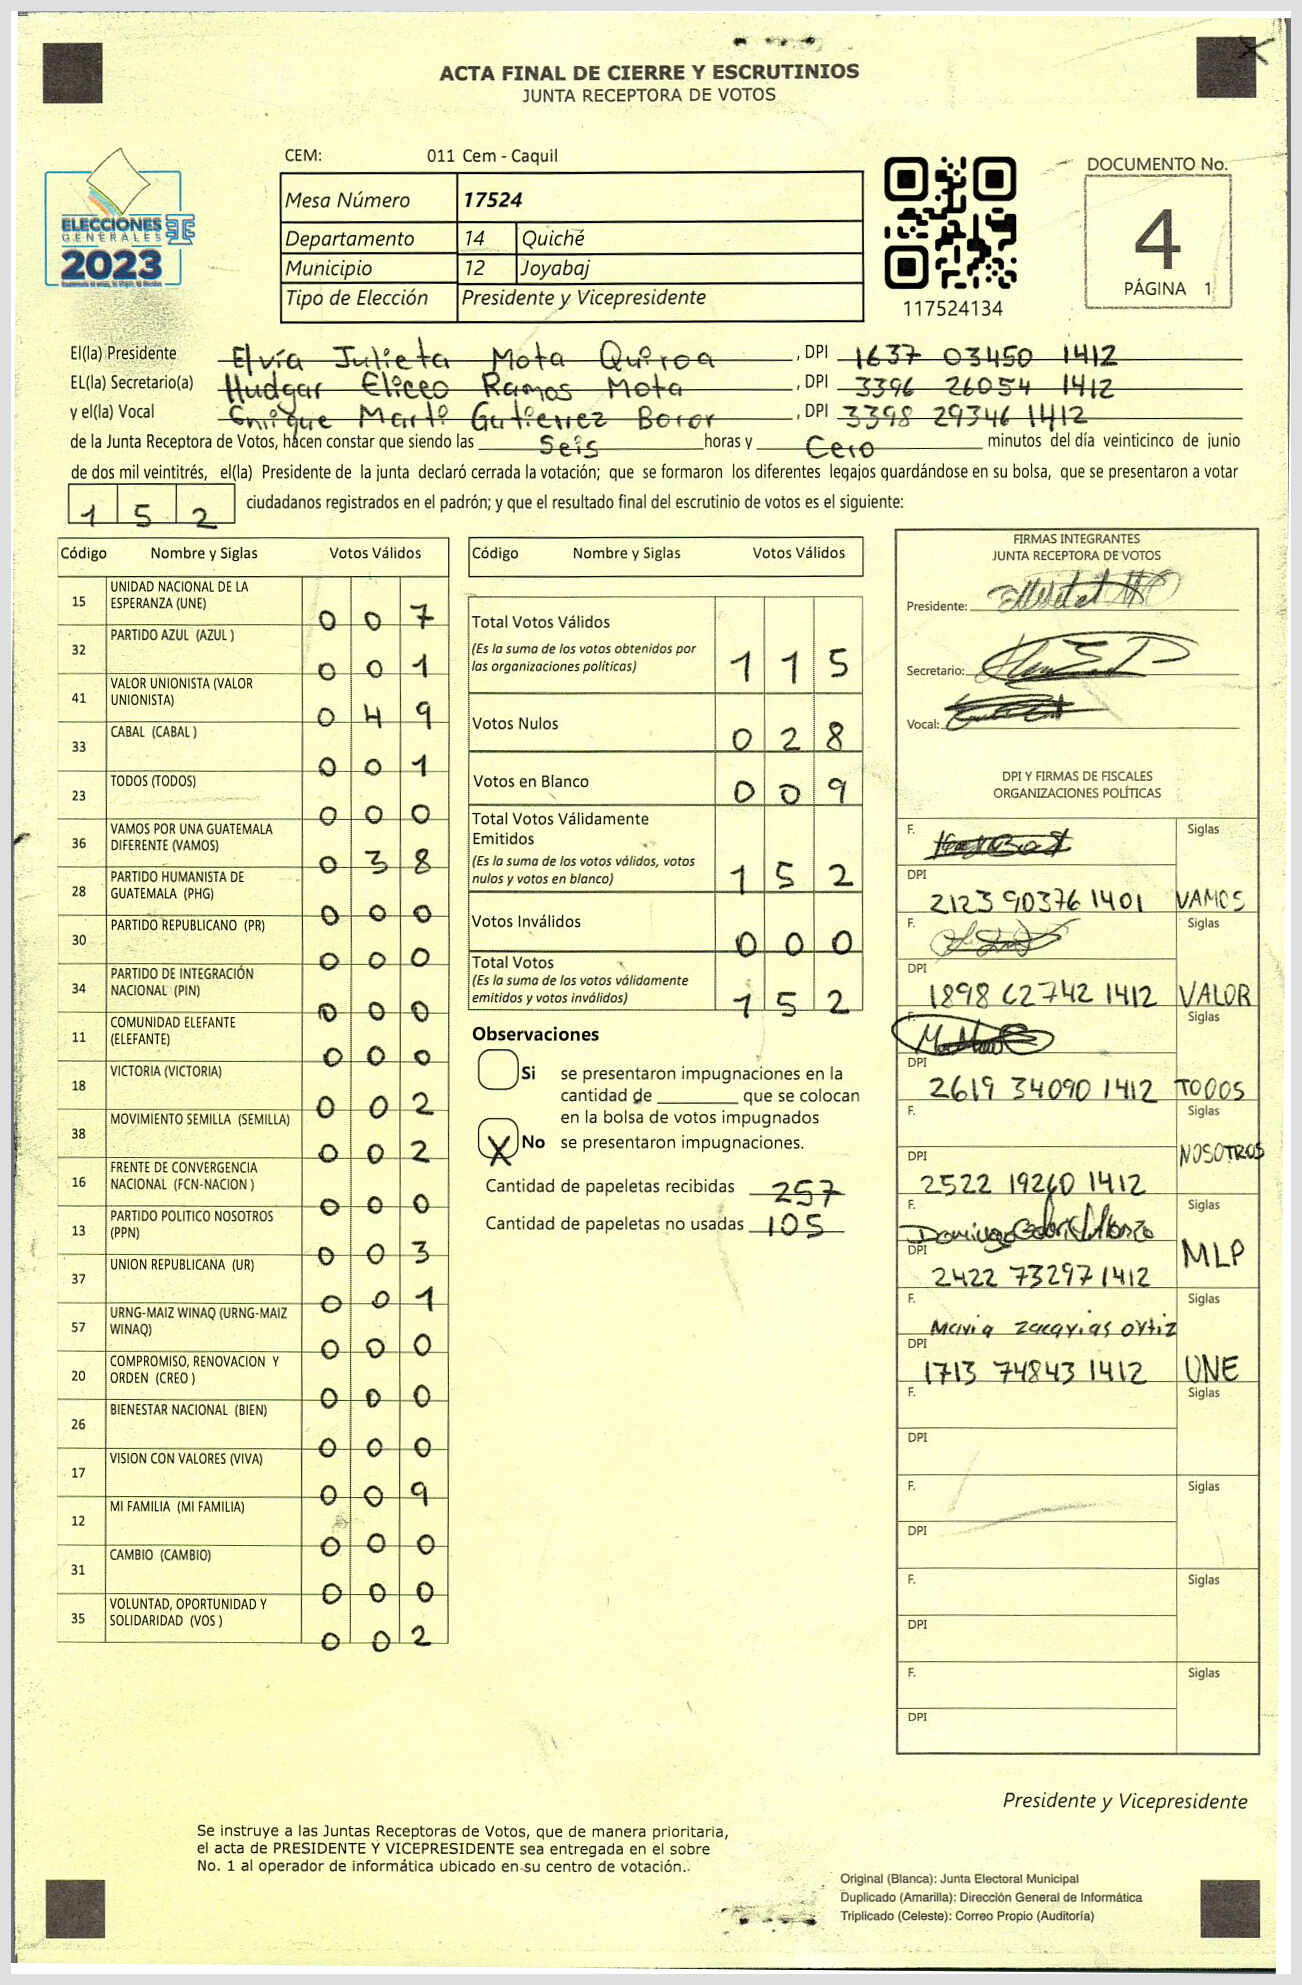 ACTA FINAL DE CIERRE Y ESCRUTINIOS
JUNTA RECEPTORA DE VOTOS
CEM: 011 Cem - Caquil
ELECCIONES
GENERALES
2023
Mesa Número 17524
Departamento 14 Quiché
Municipio 12 Joyabaj
Tipo de Elección Presidente y Vicepresidente
117524134
DOCUMENTO No.
4
PÁGINA 1
El(la) Presidente Elvia Julieta Mota Quiroa , DPI 1637 03450 1412
EL(la) Secretario(a) Hudgar Eliceo Ramos Mota , DPI 3396 26054 1412
y el(la) Vocal Enrique Martí Gutierrez Boror , DPI 3398 29346 1412
de la Junta Receptora de Votos, hacen constar que siendo las Seis horas y Cero minutos del día veinticinco de junio
de dos mil veintitrés, el(la) Presidente de la junta declaró cerrada la votación; que se formaron los diferentes legajos guardándose en su bolsa, que se presentaron a votar
1 5 2 ciudadanos registrados en el padrón; y que el resultado final del escrutinio de votos es el siguiente:
Código Nombre y Siglas Votos Válidos
15 UNIDAD NACIONAL DE LA
ESPERANZA (UNE) 0 0 7
32 PARTIDO AZUL (AZUL ) 0 0 1
41 VALOR UNIONISTA (VALOR
UNIONISTA) 0 4 9
33 CABAL (CABAL ) 0 0 1
23 TODOS (TODOS) 0 0 0
36 VAMOS POR UNA GUATEMALA
DIFERENTE (VAMOS) 0 3 8
28 PARTIDO HUMANISTA DE
GUATEMALA (PHG) 0 0 0
30 PARTIDO REPUBLICANO (PR) 0 0 0
34 PARTIDO DE INTEGRACIÓN
NACIONAL (PIN) 0 0 0
11 COMUNIDAD ELEFANTE
(ELEFANTE) 0 0 0
18 VICTORIA (VICTORIA) 0 0 2
38 MOVIMIENTO SEMILLA (SEMILLA) 0 0 2
16 FRENTE DE CONVERGENCIA
NACIONAL (FCN-NACION ) 0 0 0
13 PARTIDO POLITICO NOSOTROS
(PPN) 0 0 3
37 UNION REPUBLICANA (UR) 0 0 1
57 URNG-MAIZ WINAQ (URNG-MAIZ
WINAQ) 0 0 0
20 COMPROMISO, RENOVACION Y
ORDEN (CREO ) 0 0 0
26 BIENESTAR NACIONAL (BIEN) 0 0 0
17 VISION CON VALORES (VIVA) 0 0 9
12 MI FAMILIA (MI FAMILIA) 0 0 0
31 CAMBIO (CAMBIO) 0 0 0
35 VOLUNTAD, OPORTUNIDAD Y
SOLIDARIDAD (VOS ) 0 0 2
Código Nombre y Siglas Votos Válidos
Total Votos Válidos
(Es la suma de los votos obtenidos por
las organizaciones políticas) 1 1 5
Votos Nulos 0 2 8
Votos en Blanco 0 0 9
Total Votos Válidamente
Emitidos
(Es la suma de los votos válidos, votos
nulos y votos en blanco) 1 5 2
Votos Inválidos 0 0 0
Total Votos
(Es la suma de los votos válidamente
emitidos y votos inválidos) 1 5 2
Observaciones
Si se presentaron impugnaciones en la
cantidad de ________ que se colocan
en la bolsa de votos impugnados
X No se presentaron impugnaciones.
Cantidad de papeletas recibidas 257
Cantidad de papeletas no usadas 105
FIRMAS INTEGRANTES
JUNTA RECEPTORA DE VOTOS
Presidente:
Secretario:
Vocal:
DPI Y FIRMAS DE FISCALES
ORGANIZACIONES POLÍTICAS
F. Siglas
DPI
2123 90376 1401 VAMOS
F. Siglas
DPI
1898 62742 1412 VALOR
F. Siglas
DPI
2619 34090 1412 TODOS
F. Siglas
DPI NOSOTROS
2522 19260 1412
F. Siglas
Domingo Gabriel Alonzo
DPI MLP
2422 73297 1412
F. Siglas
Maria Zacarias Ortiz
DPI
1713 74843 1412 UNE
F. Siglas
DPI
F. Siglas
DPI
F. Siglas
DPI
F. Siglas
DPI
Presidente y Vicepresidente
Se instruye a las Juntas Receptoras de Votos, que de manera prioritaria,
el acta de PRESIDENTE Y VICEPRESIDENTE sea entregada en el sobre
No. 1 al operador de informática ubicado en su centro de votación.
Original (Blanca): Junta Electoral Municipal
Duplicado (Amarilla): Dirección General de Informática
Triplicado (Celeste): Correo Propio (Auditoría)